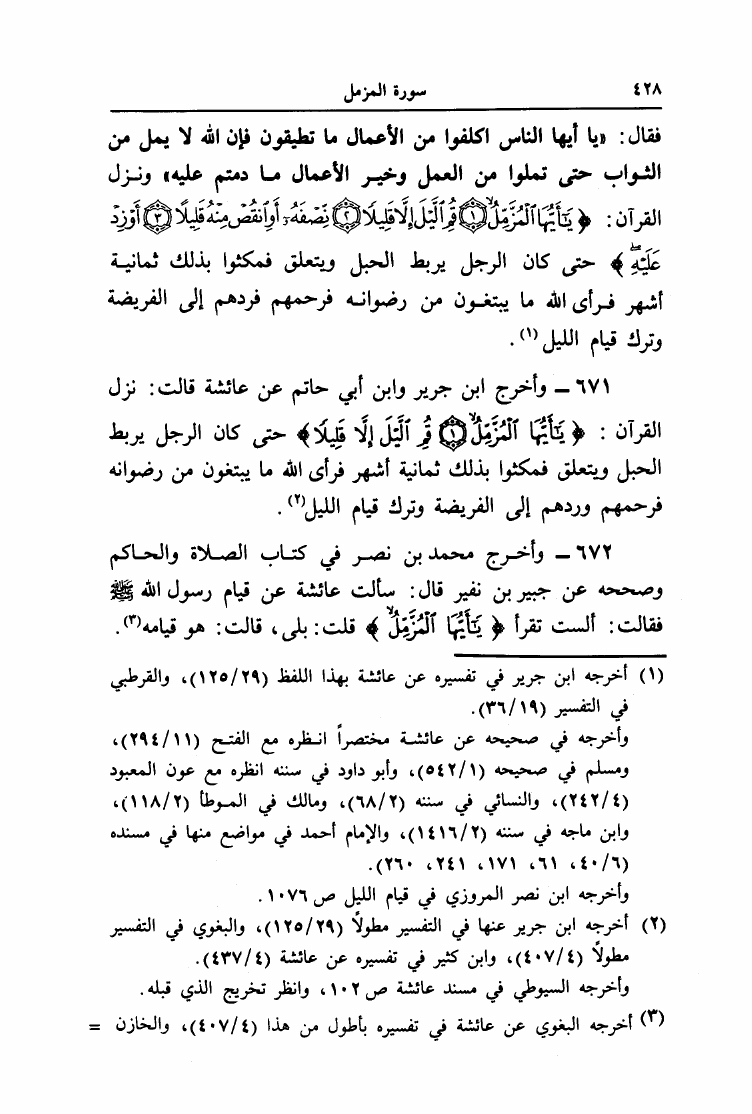 ٤٢٨
سورة المزمل
فقال: «يا أيها الناس اكلفوا من الأعمال ما تطيقون فإن الله لا يمل من
الثواب حتى تملوا من العمل وخير الأعمال ما دمتم عليه» ونزل
القرآن: ﴿ يَٰٓأَيُّهَا ٱلْمُزَّمِّلُ ۝١ قُمِ ٱلَّيْلَ إِلَّا قَلِيلًا ۝٢ نِّصْفَهُۥٓ أَوِ ٱنقُصْ مِنْهُ قَلِيلًا ۝٣ أَوْ زِدْ
عَلَيْهِ ﴾ حتى كان الرجل يربط الحبل ويتعلق فمكثوا بذلك ثمانية
أشهر فرأى الله ما يبتغون من رضوانه فرحمهم فردهم إلى الفريضة
وترك قيام الليل (١).
٦٧١ – وأخرج ابن جرير وابن أبي حاتم عن عائشة قالت: نزل
القرآن : ﴿ يَٰٓأَيُّهَا ٱلْمُزَّمِّلُ ۝١ قُمِ ٱلَّيْلَ إِلَّا قَلِيلًا ﴾ حتى كان الرجل يربط
الحبل ويتعلق فمكثوا بذلك ثمانية أشهر فرأى الله ما يبتغون من رضوانه
فرحمهم وردهم إلى الفريضة وترك قيام الليل(٢).
٦٧٢ – وأخرج محمد بن نصر في كتاب الصلاة والحاكم
وصححه عن جبير بن نفير قال: سألت عائشة عن قيام رسول الله ﷺ
فقالت: ألست تقرأ ﴿ يَٰٓأَيُّهَا ٱلْمُزَّمِّلُ ﴾ قلت: بلى، قالت: هو قيامه(٣).
(١) أخرجه ابن جرير في تفسيره عن عائشة بهذا اللفظ (١٢٥/٢٩)، والقرطبي
في التفسير (٣٦/١٩).
وأخرجه في صحيحه عن عائشة مختصراً انظره مع الفتح (٢٩٤/١١)،
ومسلم في صحيحه (٥٤٢/١)، وأبو داود في سننه انظره مع عون المعبود
(٢٤٢/٤)، والنسائي في سننه (٦٨/٢)، ومالك في الموطأ (١١٨/٢)،
وابن ماجه في سننه (١٤١٦/٢)، والإمام أحمد في مواضع منها في مسنده
(٤٠/٦، ٦١، ١٧١، ٢٤١، ٢٦٠).
وأخرجه ابن نصر المروزي في قيام الليل ص ١٠٧٦.
(٢) أخرجه ابن جرير عنها في التفسير مطولًا (١٢٥/٢٩)، والبغوي في التفسير
مطولًا (٤٠٧/٤)، وابن كثير في تفسيره عن عائشة (٤٣٧/٤).
وأخرجه السيوطي في مسند عائشة ص ١٠٢، وانظر تخريج الذي قبله.
(٣) أخرجه البغوي عن عائشة في تفسيره بأطول من هذا (٤٠٧/٤)، والخازن =